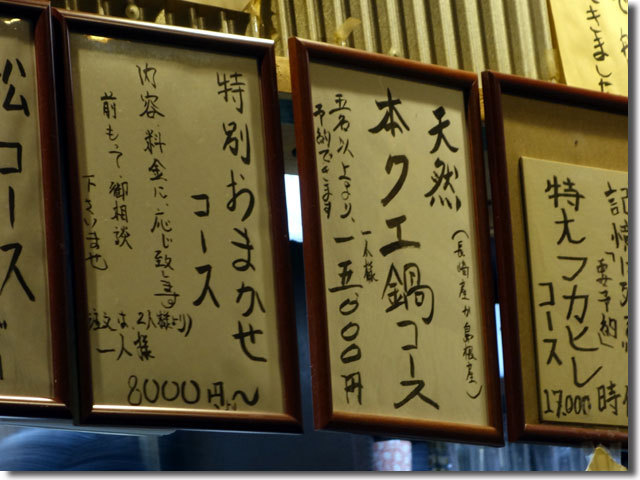 できました
記憶に
「要予約」
特大フカヒレ
コース
17,000円
時価
天然
(長崎産か島根産)
本クエ鍋コース
一人様
五名以上より、一五,〇〇〇円
予約できます
特別おまかせ
コース
内容料金に、応じ致します
前もって、御相談
下さいませ
(注文は、2人様より)
一人様
8000円〜
松コース